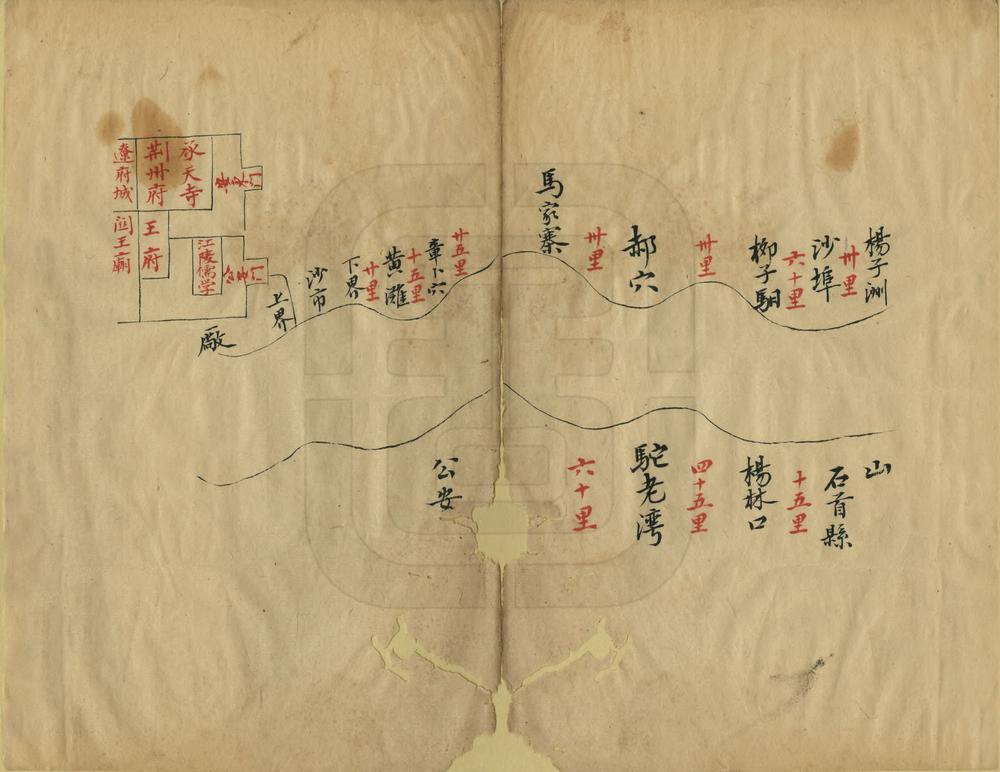 楊子洲
卅里
沙埠
六十里
柳子駬
卅里
郝穴
卅里
馬家寨
廿五里
章卜穴
十五里
黃灘
廿里
下界
沙市
上界
廠
承天寺
荆州府
遼府城
江陵儒学
王府
関王廟
山
石首縣
十五里
楊林口
四十五里
駝老灣
六十里
公安